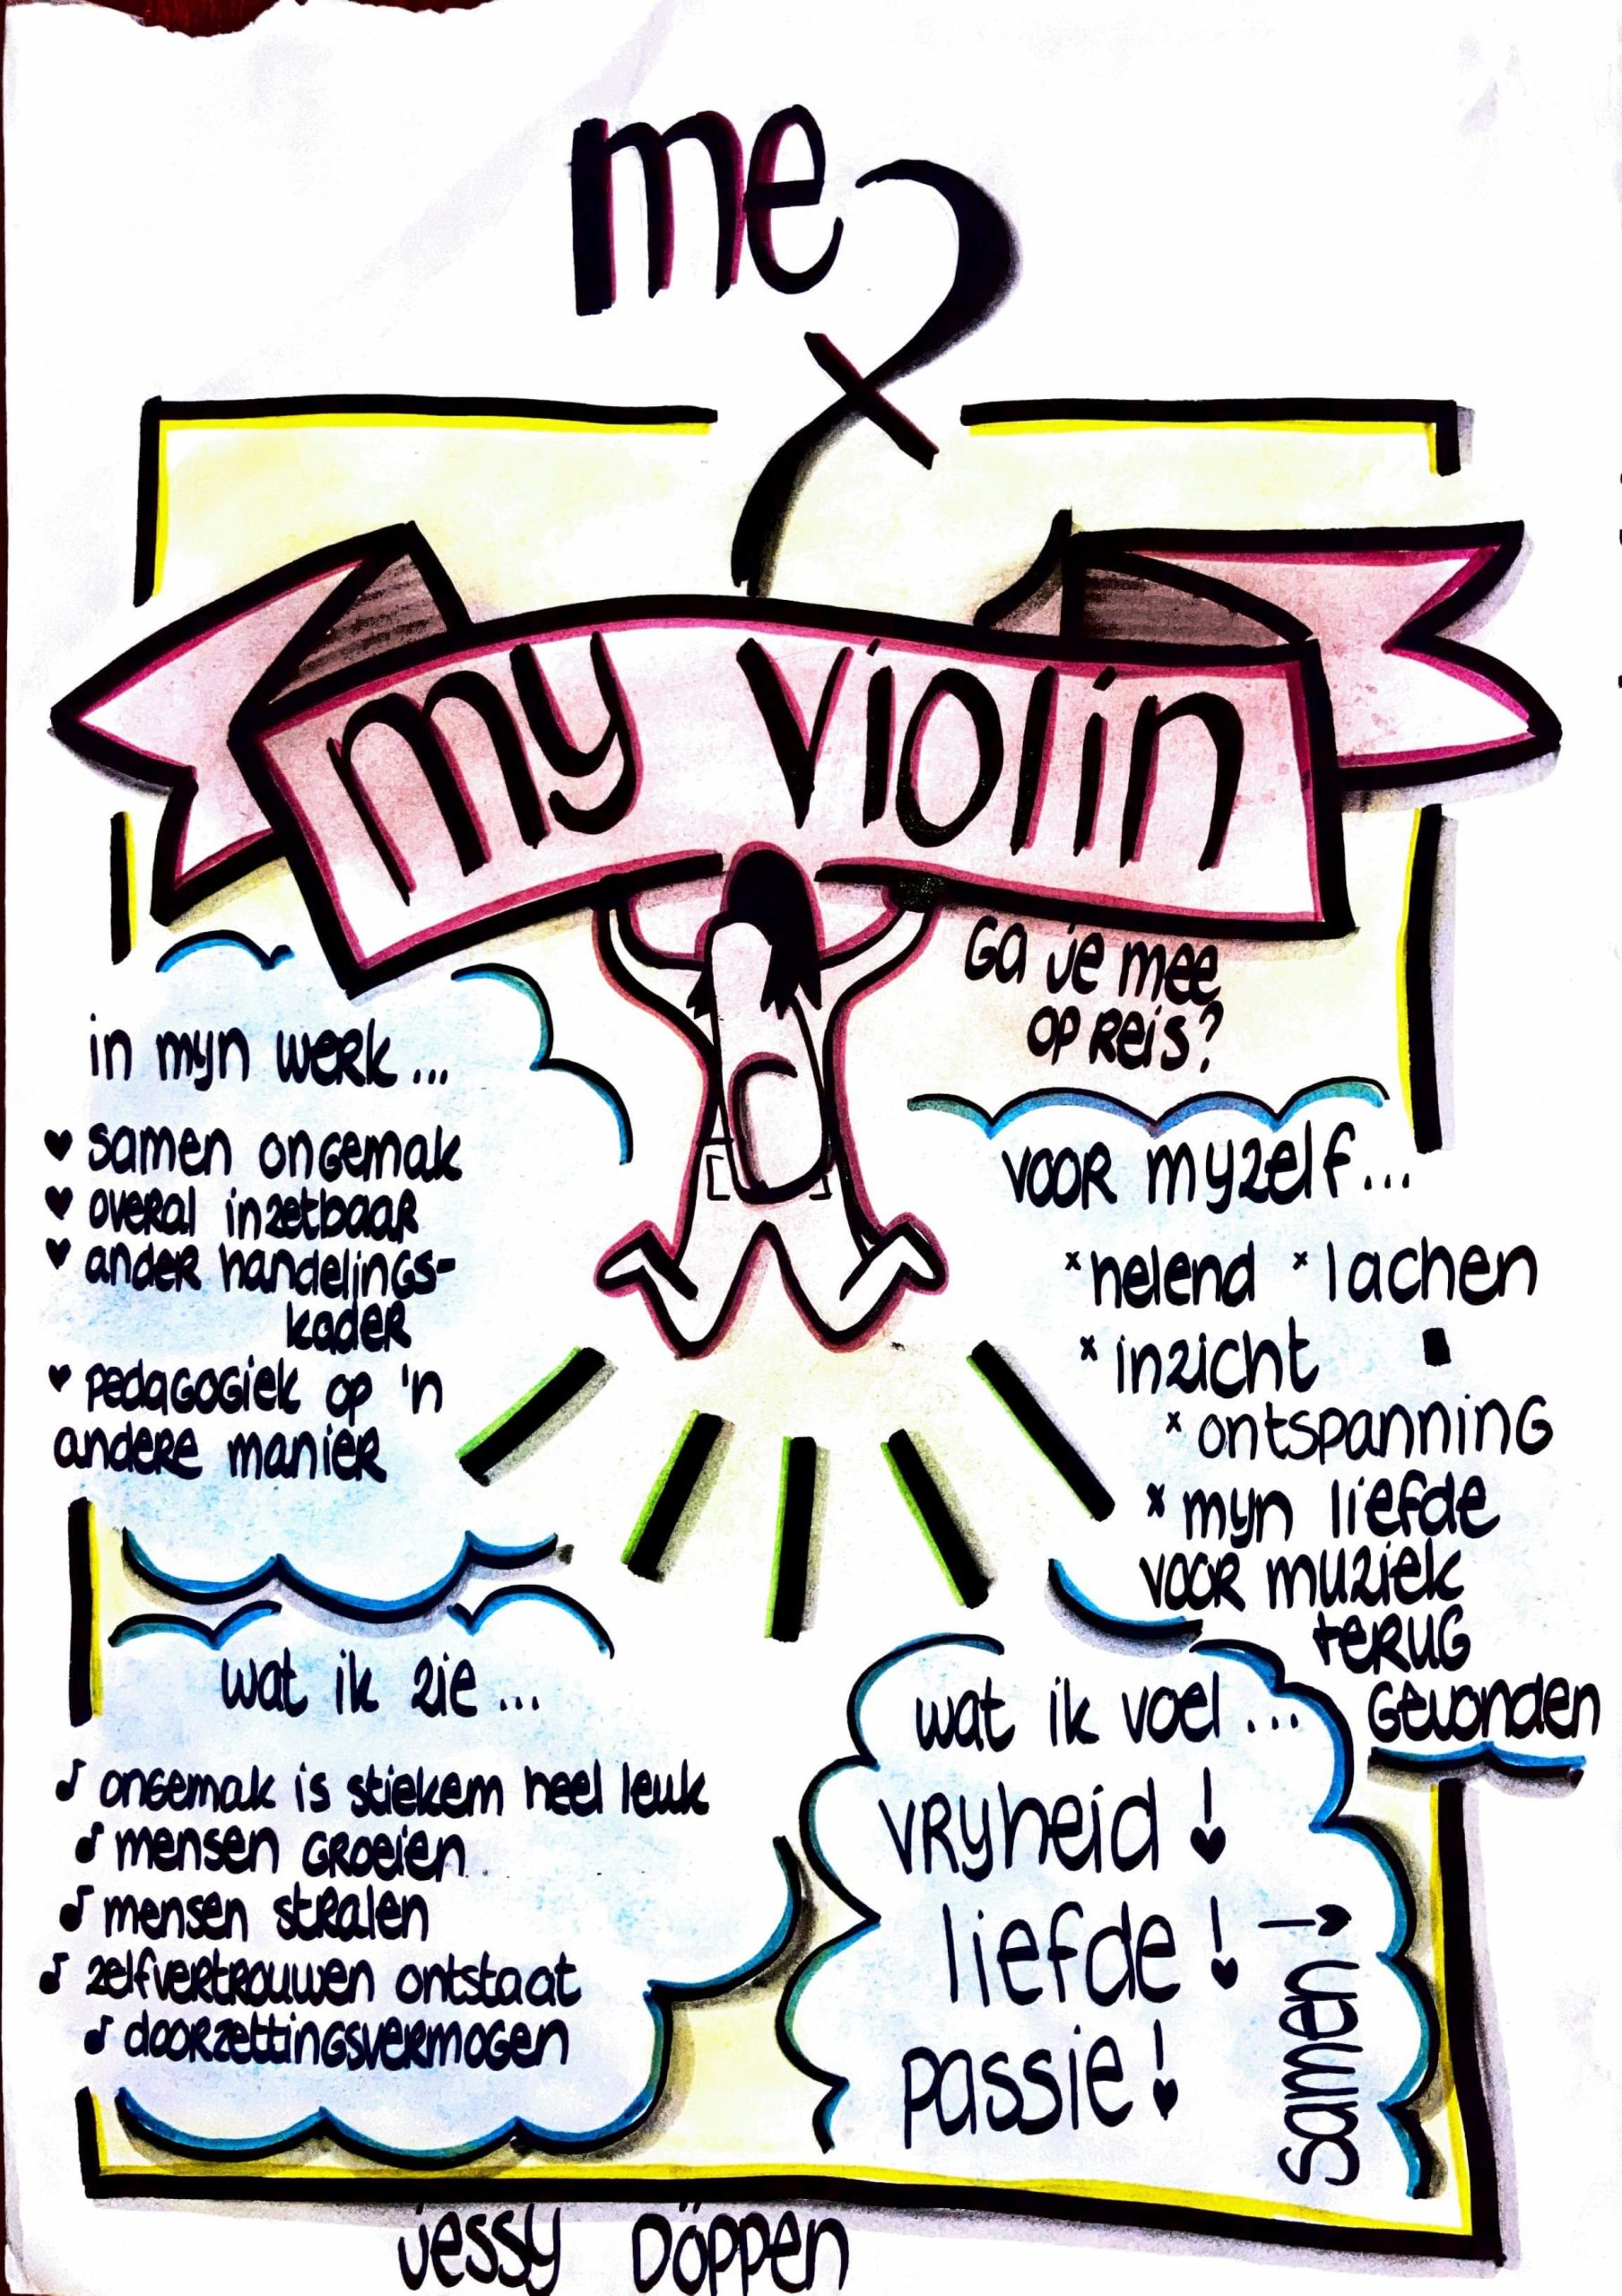 me
my violin
Ga je mee
op reis?
in mijn werk...
samen ongemak
overal inzetbaar
ander handelings-
kader
pedagogiek op 'n
andere manier
voor mijzelf...
*helend *lachen
*inzicht
*ontspanning
*mijn liefde
voor muziek
terug
gevonden
wat ik zie...
ongemak is stiekem heel leuk
mensen groeien.
mensen stralen
zelfvertrouwen ontstaat
doorzettingsvermogen
wat ik voel...
vrijheid!
liefde!
passie!
samen!
Jessy Döppen